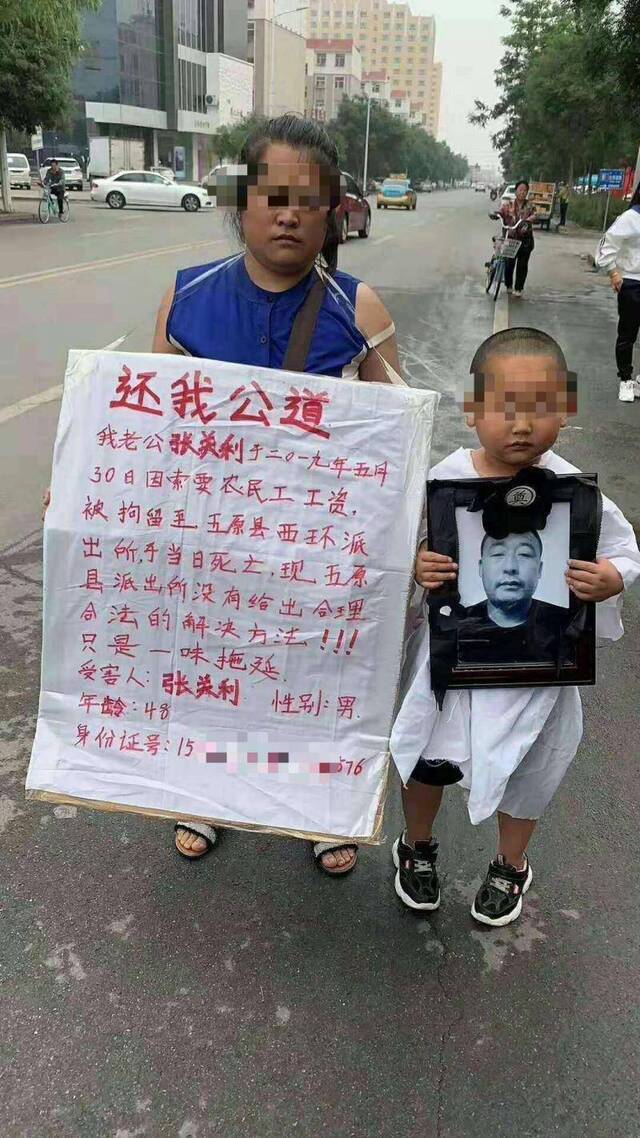 还我公道
我老公张美利于二〇一九年五月
30日因索要农民工工资,
被拘留至五原县西环派
出所,于当日死亡,现五原
县派出所没有给出合理
合法的解决方法!!!
只是一味拖延.
受害人:张美利
性别:男.
年龄:48
身份证号:15 576
奠